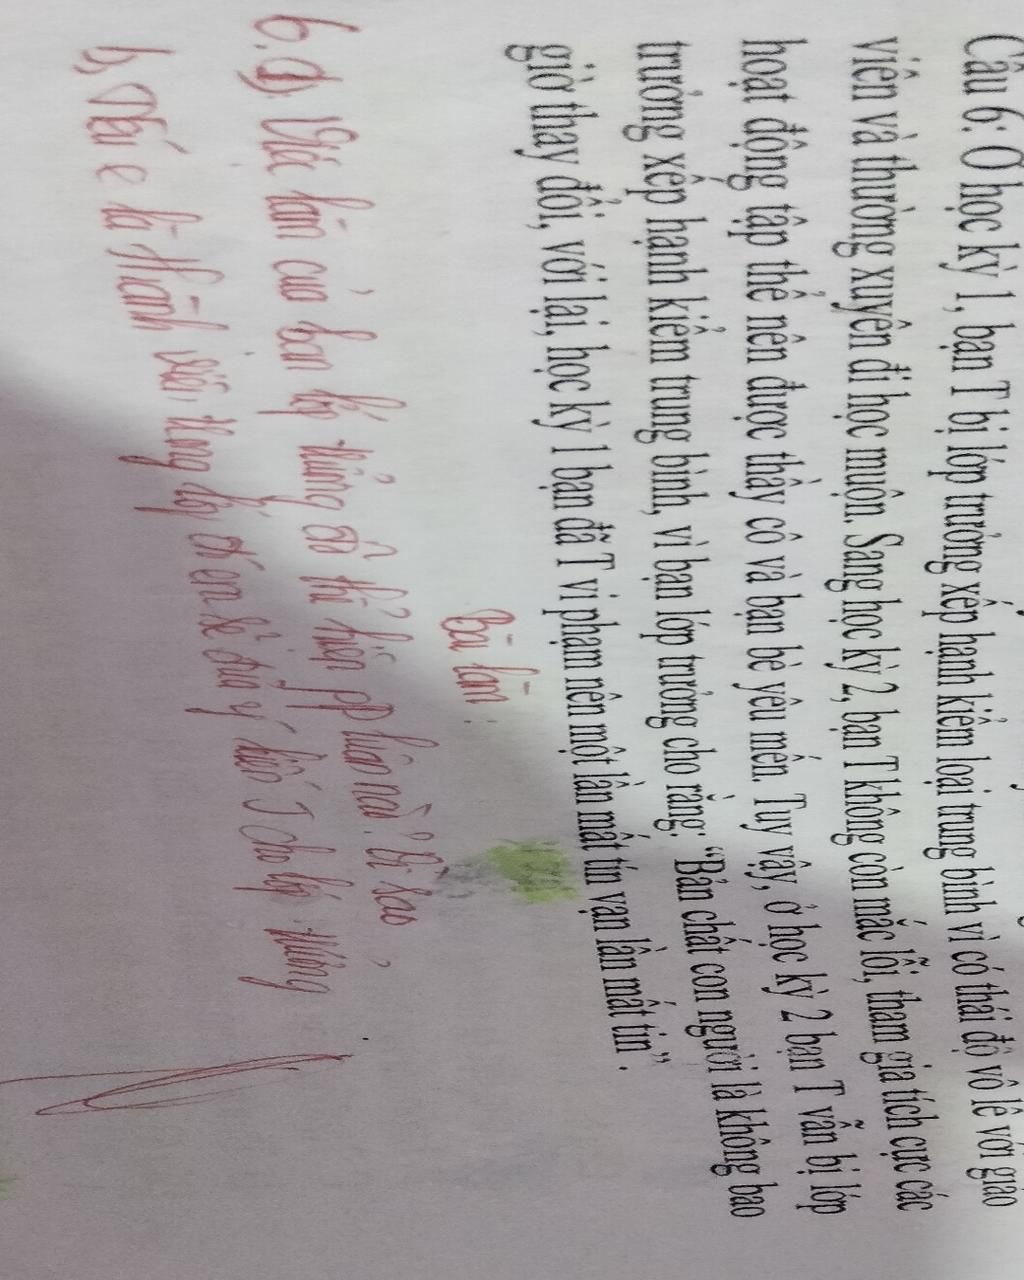 Câu 6: Ở học kỳ 1, bạn T bị lớp trưởng xếp hạnh kiểm loại trung bình vì có thái độ vô lễ với giáo
viên và thường xuyên đi học muộn. Sang học kỳ 2, bạn T không còn mắc lỗi, tham gia tích cực các
hoạt động tập thể nên được thầy cô và bạn bè yêu mến. Tuy vậy, ở học kỳ 2 bạn T vẫn bị lớp
trưởng xếp hạnh kiểm trung bình, vì bạn lớp trưởng cho rằng: “Bản chất con người là không bao
giờ thay đổi, với lại, học kỳ 1 bạn đã T vi phạm nên một lần mất tín vạn lần mất tin”.
Bài làm:
6. a) Việc làm của bạn lớp trưởng đã thể hiện pp luận nào? Vì sao
b, Nếu e là thành viên trong lớp, em sẽ đưa ý kiến J cho lớp trưởng